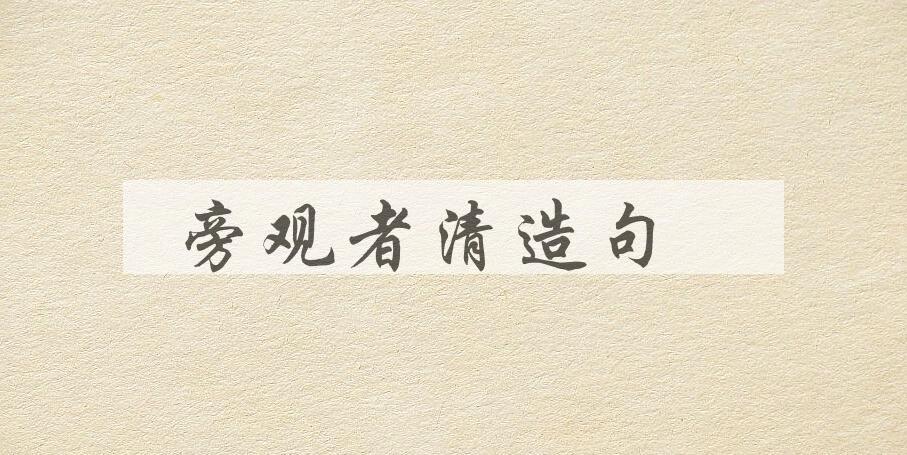 旁观者清造句